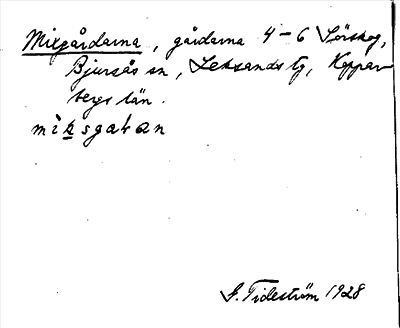 Mixgårdarna, gårdarna 4-6 Sörskog,
Bjursås sn, Leksands tg, Koppar-
bergs län.
mìksgaḷan
G. Tideström 1928